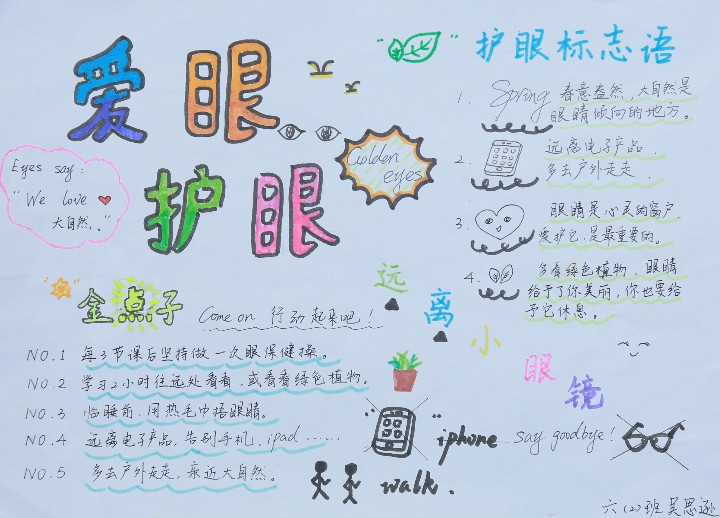 爱眼
护眼
Golden
eyes
Eyes say:
"We love
大自然."
护眼标志语
1. Spring 春意盎然,大自然是
眼睛倾向的地方。
2. 远离电子产品.
多去户外走走.
3. 眼睛是心灵的窗户
爱护它,是最重要的。
4. 多看绿色植物,眼睛
给予了你美丽,你也要给
予它休息。
金点子 Come on 行动起来吧!
NO.1 每3节课后坚持做一次眼保健操。
NO.2 学习2小时往远处看看,或看看绿色植物。
NO.3 临睡前,用热毛巾捂眼睛。
NO.4 远离电子产品,告别手机、ipad……
NO.5 多去户外走走,亲近大自然。
远离小眼镜
"iphone say goodbye!
walk.
六(2)班 吴思逊